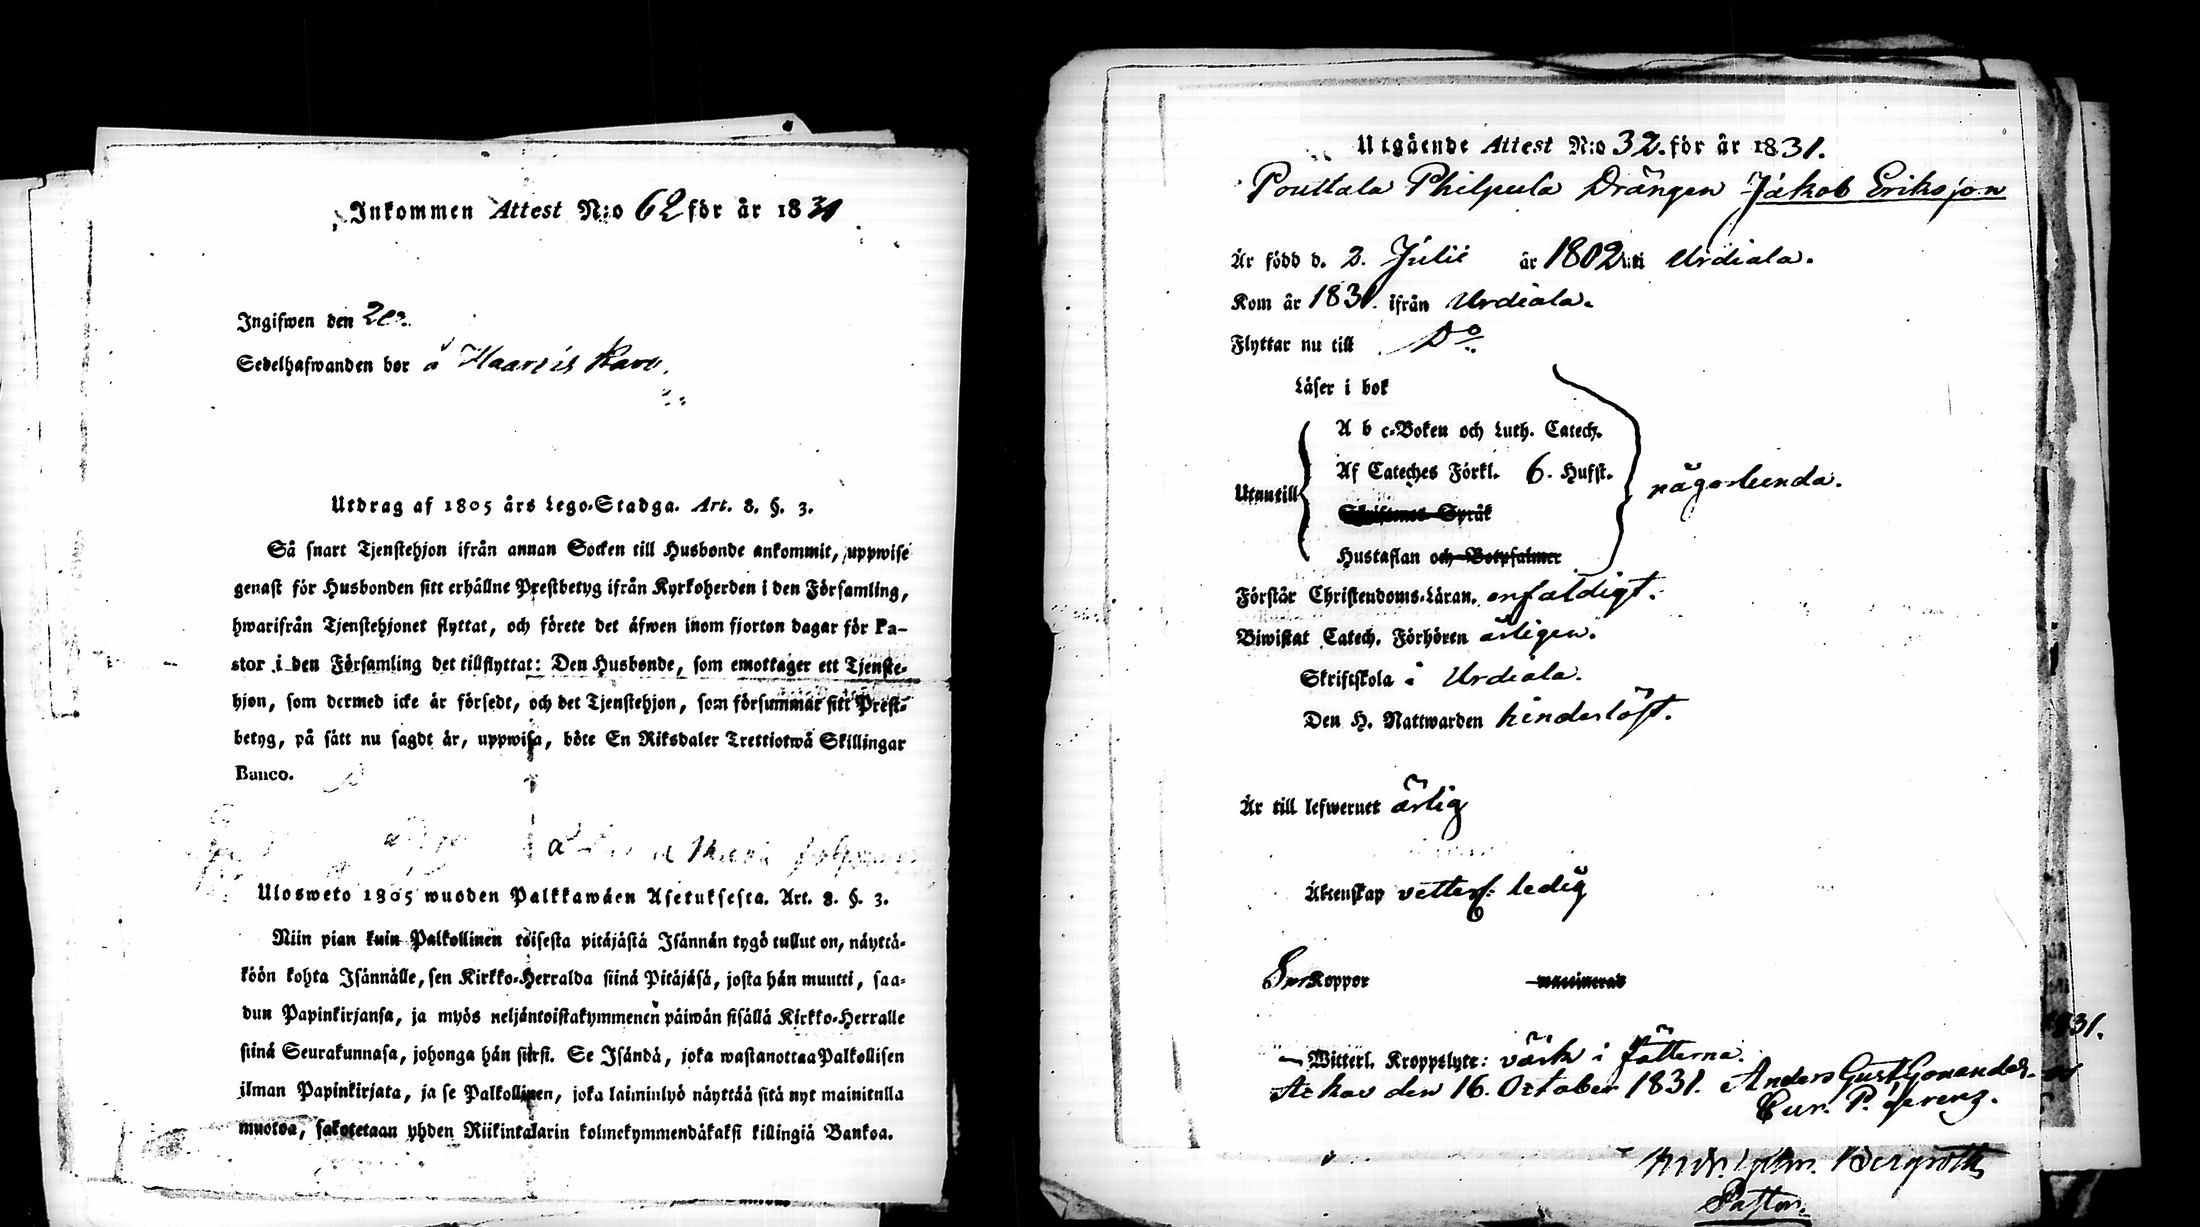 Inkommen Attest N:o 62 för år 1831
Ingifwen den
Sedelhafwanden bor å
Utdrag af 1805 års Lego-Stadga. Art. 8. §. 3.
Så snart Tjenstehjon ifrån annan Socken till Husbonde ankommit, uppwise
genast för Husbonden sitt erhållne Prestbetyg ifrån Kyrkoherden i den Församling,
hwarifrån Tjenstehjonet flyttat, och förete det äfwen inom fjorton dagar för Pa-
stor i den Församling det tillflyttat: Den Husbonde, som emottager ett Tjenste-
hjon, som dermed icke är försedt, och det Tjenstehjon, som försummar sitt Prest-
betyg, på sätt nu sagdt är, uppwisa, böte En Riksdaler Trettiotwå Skillingar
Banco.
Ulosweto 1805 wuoden Palkkawäen Asetuksesta. Art. 8. §. 3.
Niin pian kuin Palkollinen toisesta pitäjästä Isännän tygö tullut on, näyttä-
köön kohta Isännälle, sen Kirkko-Herralda siinä Pitäjäsä, josta hän muutti, saa-
dun Papinkirjansa, ja myös neljäntoistakymmenen päiwän sisällä Kirkko-Herralle
siinä Seurakunnasa, johonga hän siirsi. Se Isändä, joka wastanottaa Palkollisen
ilman Papinkirjata, ja se Palkollinen, joka laiminlyö näyttää sitä nyt mainitulla
muotoa, sakotetaan yhden Riikintalarin kolmekymmendäkaksi killingiä Bankoa.
Utgående Attest N:o 32. för år 1831.
Pouttala Philpula Drängen Jakob Eriksson
Är född d. 2. Julii år 1802 uti Urdiala.
Kom år 1831. ifrån Urdiala.
Flyttar nu till Do
Läser i bok
A b c-Boken och Luth. Catech.
Af Cateches Förkl. 6. Hufst.
Utantill någorlunda.
Skriftenes Språk
Hustaflan och Botpsalmer
Förstår Christendoms-Läran. enfaldigt.
Biwistat Catech. Förhören årligen.
Skriftskola i Urdiala.
Den H. Nattwarden hinderlöst.
Är till lefwernet ärlig
Äktenskap vetterl: ledig
Koppor vaccinerad
Witterl. Kroppslyte: värk i fötterna.
den 16. October 1831. Anders Gust
Bergroth
Pastor.
1831.